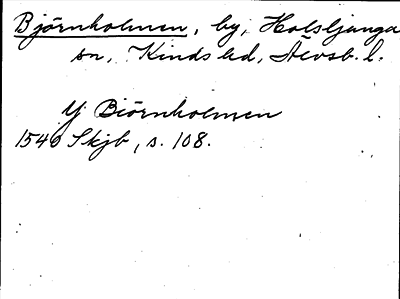 Björnholmen, by, Holsljunga
sn, Kinds hd, Älvsb. l.
Y Biörnholmen
1540 Skjb, s. 108.